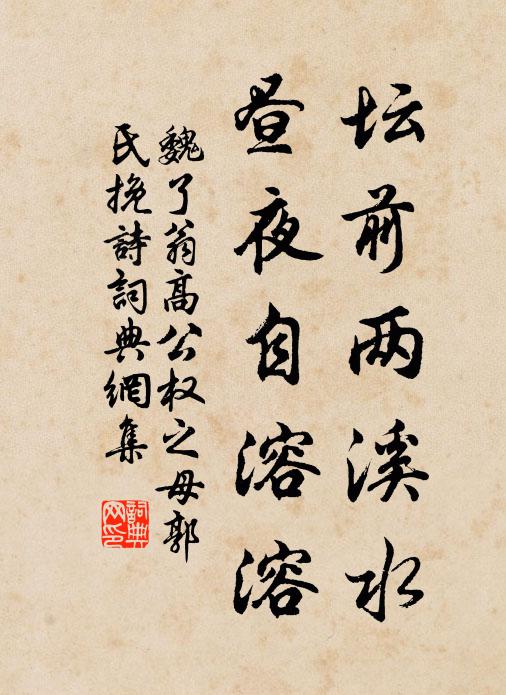 坛前两溪水
昼夜自溶溶
魏了翁高公权之母郭
氏挽詩詞典網集
詞典网印